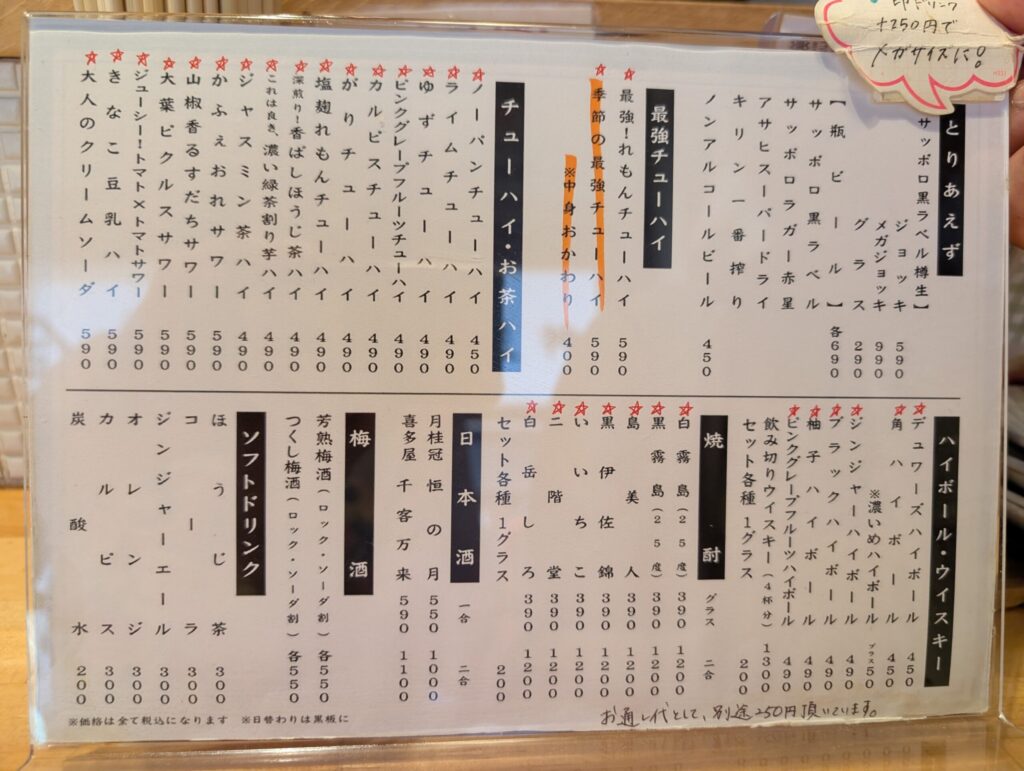 印ドリンク
+250円で
メガサイズに。
とりあえず
【サッポロ黒ラベル樽生】
ジョッキ 590
メガジョッキ 990
グラス 290
【瓶ビール】 各690
サッポロ黒ラベル
サッポロラガー赤星
アサヒスーパードライ
キリン一番搾り
ノンアルコールビール 450
最強チューハイ
☆最強!れもんチューハイ 590
☆季節の最強チューハイ 590
※中身おかわり 400
チューハイ・お茶ハイ
☆ノーパンチューハイ 450
☆ライムチューハイ 490
☆ゆずチューハイ 490
☆ピンクグレープフルーツチューハイ 490
☆カルピスチューハイ 490
☆がりチューハイ 490
☆塩麹れもんチューハイ 490
☆深煎り!香ばしほうじ茶ハイ 490
☆これは良き、濃い緑茶割り芋ハイ 490
☆ジャスミン茶ハイ 490
☆かふぇおれサワー 590
☆山椒香るすだちサワー 590
☆大葉ピクルスサワー 590
☆ジューシー!トマト×トマトサワー 590
☆きなこ豆乳ハイ 590
☆大人のクリームソーダ 590
ハイボール・ウイスキー
☆デュワーズハイボール 450
☆角ハイボール 450
※濃いめハイボール プラス50
☆ジンジャーハイボール 490
☆ブラックハイボール 490
☆柚子ハイボール 490
☆ピンクグレープフルーツハイボール 490
飲み切りウイスキー(4杯分) 1300
セット各種 1グラス 200
焼酎 グラス 二合
☆白霧島(25度) 390 1200
☆黒霧島(25度) 390 1200
☆島美人 390 1200
☆黒伊佐錦 390 1200
☆いいちこ 390 1200
☆二階堂 390 1200
☆白岳しろ 390 1200
セット各種 1グラス 200
日本酒 一合 二合
月桂冠 恒の月 550 1000
喜多屋 千客万来 590 1100
梅酒
芳熟梅酒(ロック・ソーダ割) 各550
つくし梅酒(ロック・ソーダ割) 各550
ソフトドリンク
ほうじ茶 300
コーラ 300
ジンジャーエール 300
オレンジ 300
カルピス 300
炭酸水 200
お通し代として、別途250円頂いています。
※価格は全て税込になります ※日替わりは黒板に